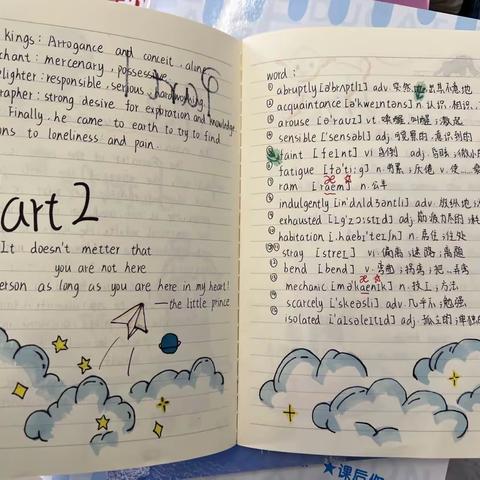 kings: Arrogance and conceit, alone
chant: mercenary, possessive
elighter: responsible, serious, hardworking
rapher: strong desire for exploration and knowledge
Finally, he came to earth to try to find
ons to loneliness and pain.
art 2
It doesn't metter that
you are not here
erson as long as you are here in my heart!
— the little prince
word:
abruptly [ə'brʌptlɪ] adv. 突然地,出其不意地
acquaintance [ə'kweɪntəns] n. 认识,相识
arouse [ə'raʊz] vt. 唤醒,叫醒;激起
sensible ['sensəbl] adj. 明智的,意识到的
faint [feɪnt] vi. 昏倒 adj.
fatigue [fə'ti:g] n. 疲劳,厌倦 v. 使
ram [ræm] n. 公羊
indulgently [ɪn'dʌldʒəntlɪ] adv. 放纵地
exhausted [ɪg'zɔ:stɪd] adj. 筋疲力尽的
habitation [.hæbɪ'teɪʃn] n. 居住;住处
stray [streɪ] vi. 偏离;迷路;离题
bend [bend] v. 弯曲;拐弯;把…弄弯
mechanic [mə'kænɪk] n. 技工;方法
scarcely ['skeəslɪ] adj. 几乎不;勉强
isolated ['aɪsəleɪtɪd] adj. 孤立的;单独的
★课后